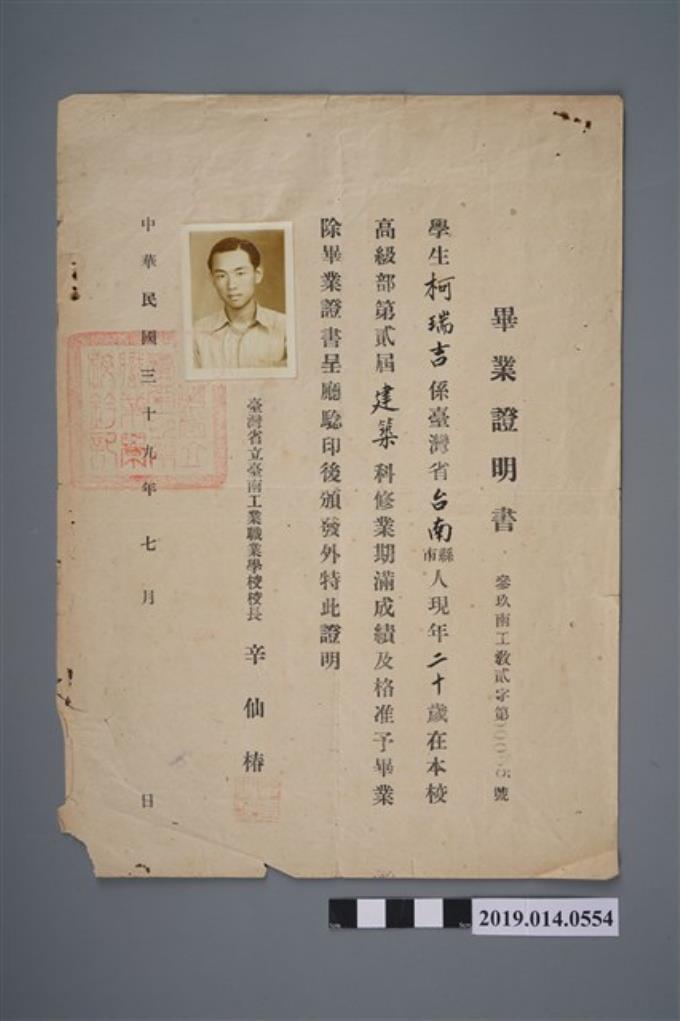 畢業證明書
參玖南工敎貳字第
號
學生柯瑞吉係臺灣省台南縣市人現年二十歲在本校
高級部第貳屆建築科修業期滿成績及格准予畢業
除畢業證書呈廳驗印後頒發外特此證明
臺灣省立臺南工業職業學校校長 辛仙椿
中華民國三十九年七月 日
2019.014.0554